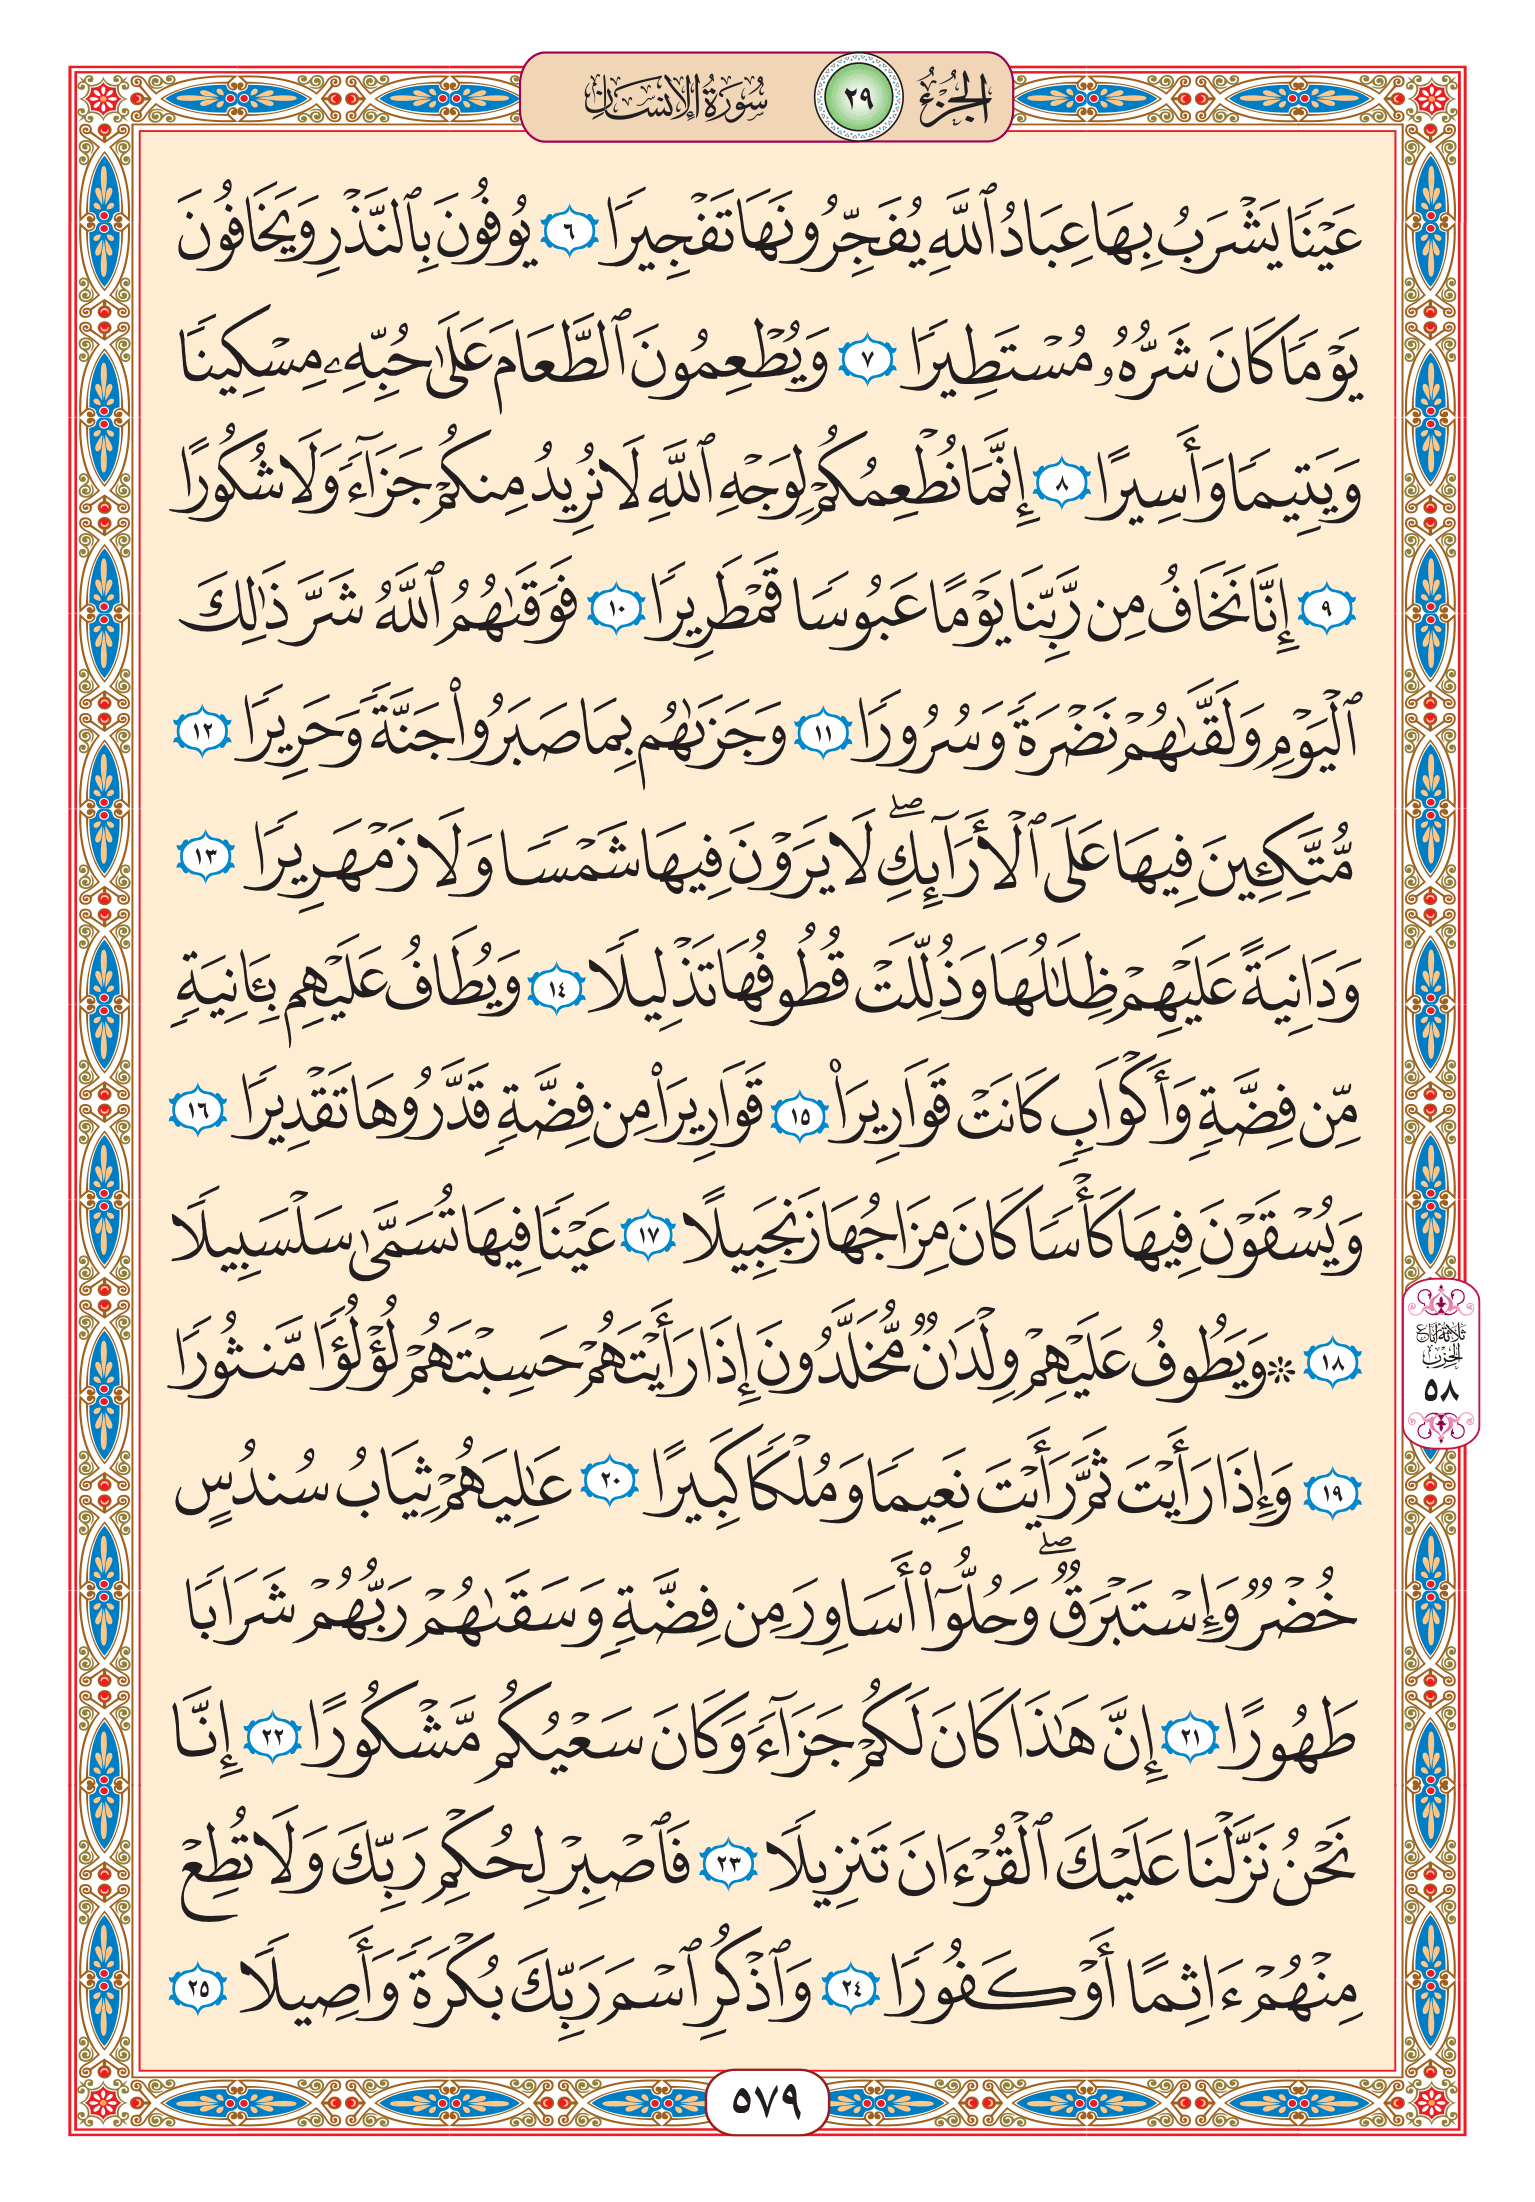 الجزء ٢٩ سورة الإنسان
عَيْنًا يَشْرَبُ بِهَا عِبَادُ ٱللَّهِ يُفَجِّرُونَهَا تَفْجِيرًا ٦ يُوفُونَ بِٱلنَّذْرِ وَيَخَافُونَ
يَوْمًا كَانَ شَرُّهُۥ مُسْتَطِيرًا ٧ وَيُطْعِمُونَ ٱلطَّعَامَ عَلَىٰ حُبِّهِۦ مِسْكِينًا
وَيَتِيمًا وَأَسِيرًا ٨ إِنَّمَا نُطْعِمُكُمْ لِوَجْهِ ٱللَّهِ لَا نُرِيدُ مِنكُمْ جَزَآءً وَلَا شُكُورًا
٩ إِنَّا نَخَافُ مِن رَّبِّنَا يَوْمًا عَبُوسًا قَمْطَرِيرًا ١٠ فَوَقَىٰهُمُ ٱللَّهُ شَرَّ ذَٰلِكَ
ٱلْيَوْمِ وَلَقَّىٰهُمْ نَضْرَةً وَسُرُورًا ١١ وَجَزَىٰهُم بِمَا صَبَرُوا۟ جَنَّةً وَحَرِيرًا ١٢
مُّتَّكِـِٔينَ فِيهَا عَلَى ٱلْأَرَآئِكِ ۖ لَا يَرَوْنَ فِيهَا شَمْسًا وَلَا زَمْهَرِيرًا ١٣
وَدَانِيَةً عَلَيْهِمْ ظِلَـٰلُهَا وَذُلِّلَتْ قُطُوفُهَا تَذْلِيلًا ١٤ وَيُطَافُ عَلَيْهِم بِـَٔانِيَةٍ
مِّن فِضَّةٍ وَأَكْوَابٍ كَانَتْ قَوَارِيرَا۠ ١٥ قَوَارِيرَا۟ مِن فِضَّةٍ قَدَّرُوهَا تَقْدِيرًا ١٦
وَيُسْقَوْنَ فِيهَا كَأْسًا كَانَ مِزَاجُهَا زَنجَبِيلًا ١٧ عَيْنًا فِيهَا تُسَمَّىٰ سَلْسَبِيلًا
١٨ ۞ وَيَطُوفُ عَلَيْهِمْ وِلْدَٰنٌ مُّخَلَّدُونَ إِذَا رَأَيْتَهُمْ حَسِبْتَهُمْ لُؤْلُؤًا مَّنثُورًا
ثلاثة أرباع
الحزب
٥٨
١٩ وَإِذَا رَأَيْتَ ثَمَّ رَأَيْتَ نَعِيمًا وَمُلْكًا كَبِيرًا ٢٠ عَـٰلِيَهُمْ ثِيَابُ سُندُسٍ
خُضْرٌ وَإِسْتَبْرَقٌ ۖ وَحُلُّوٓا۟ أَسَاوِرَ مِن فِضَّةٍ وَسَقَىٰهُمْ رَبُّهُمْ شَرَابًا
طَهُورًا ٢١ إِنَّ هَـٰذَا كَانَ لَكُمْ جَزَآءً وَكَانَ سَعْيُكُم مَّشْكُورًا ٢٢ إِنَّا
نَحْنُ نَزَّلْنَا عَلَيْكَ ٱلْقُرْءَانَ تَنزِيلًا ٢٣ فَٱصْبِرْ لِحُكْمِ رَبِّكَ وَلَا تُطِعْ
مِنْهُمْ ءَاثِمًا أَوْ كَفُورًا ٢٤ وَٱذْكُرِ ٱسْمَ رَبِّكَ بُكْرَةً وَأَصِيلًا ٢٥
٥٧٩